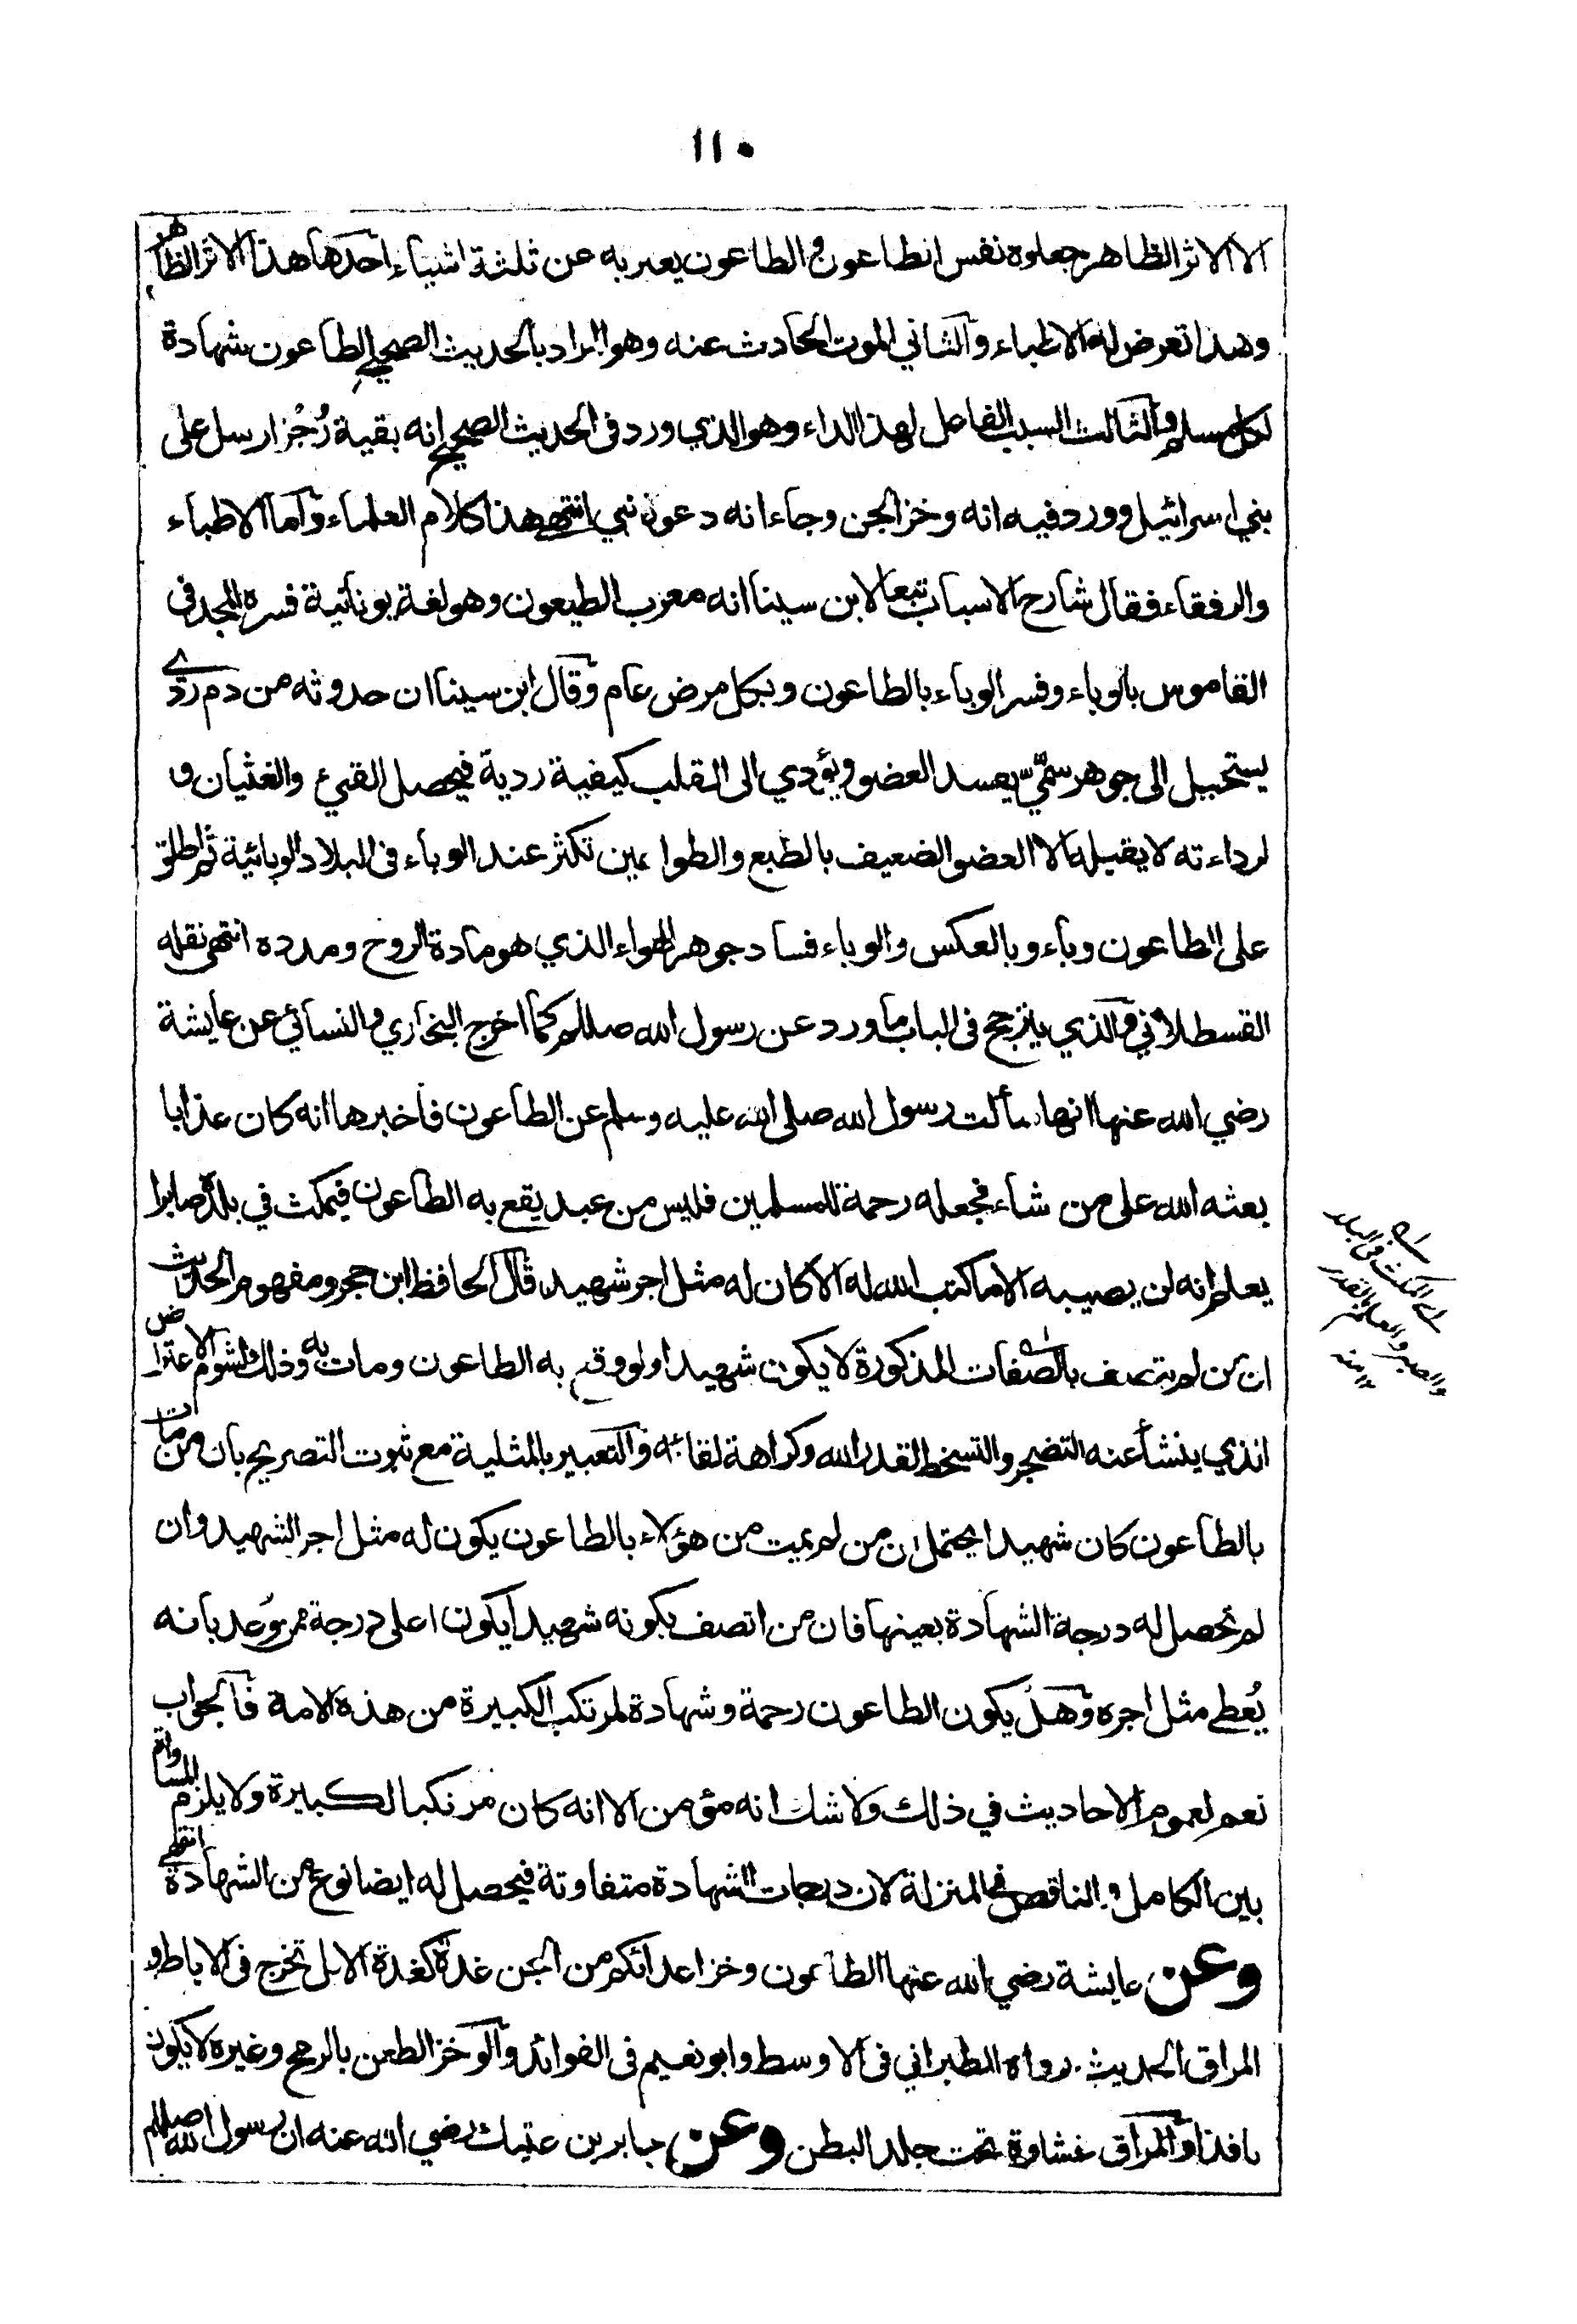 ١١٠
الا الاثر الظاهر جعلوه نفس الطاعون والطاعون يعبر به عن ثلثة اشياء احدها هذا الاثر الظاهر
وهذا تعرض له الاطباء والثاني الموت الحادث عنه وهو المراد بالحديث الصحيح الطاعون شهادة
لكل مسلم والثالث السبب الفاعل لهذا الداء وهو الذي ورد في الحديث الصحيح انه بقية رُجُز ارسل على
بني اسرائيل وورد فيه انه وخز الجن وجاء انه دعوة نبي انتهى هذا كلام العلماء واما الاطباء
والرفقاء فقال شارح الاسباب تبعا لابن سينا انه معرب الطيعون وهو لغة يونانية فسره المجد في
القاموس بالوباء وفسر الوباء بالطاعون وبكل مرض عام وقال ابن سينا ان حدوثه من دم ردي
يستحيل الى جوهر سمّيّ يفسد العضو ويؤدي الى القلب كيفية ردية فيحصل القيء والغثيان و
لرداءته لا يقبله الا العضو الضعيف بالطبع والطواعين تكثر عند الوباء في البلاد الوبائية ثم اطلق
على الطاعون وباء وبالعكس والوباء فساد جوهر الهواء الذي هو مادة الروح ومدده انتهى نقله
القسطلاني والذي يترجح في الباب ما ورد عن رسول الله صللم كما اخرج البخاري والنسائي عن عايشة
رضي الله عنها انها سألت رسول الله صلى الله عليه وسلم عن الطاعون فاخبرها انه كان عذابا
بعثه الله على من شاء فجعله رحمة للمسلمين فليس من عبد يقع به الطاعون فيمكث في بلده صابرا
يعلم انه لن يصيبه الا ما كتب الله له الا كان له مثل اجر شهيد قال الحافظ ابن حجر ومفهوم الحديث
ان من لم يتصف بالصفات المذكورة لا يكون شهيدا ولو وقع به الطاعون ومات به وذلك لشوم الاعتراض
الذي ينشأ عنه التضجر والتسخط لقدر الله وكراهة لقائه والتعبير بالمثلية مع ثبوت التصريح بان من مات
بالطاعون كان شهيدا يحتمل ان من لم يمت من هؤلاء بالطاعون يكون له مثل اجر الشهيد وان
لم تحصل له درجة الشهادة بعينها فان من اتصف بكونه شهيدا يكون اعلى درجة ممن وُعد بانه
يُعطى مثل اجره وهل يكون الطاعون رحمة وشهادة لمرتكب الكبيرة من هذه الامة فالجواب
نعم لعموم الاحاديث في ذلك ولا شك انه مؤمن الا انه كان مرتكبا لكبيرة ولا يلزم المساواة
بين الكامل والناقص في المنزلة لان درجات الشهادة متفاوتة فيحصل له ايضا نوع من الشهادة انتهى
وعن عايشة رضي الله عنها الطاعون وخز اعدائكم من الجن غدة كغدة الابل تخرج في الاباط و
المراق الحديث رواه الطبراني في الاوسط وابو نعيم في الفوائد والوخز الطعن بالرمح وغيره لا يكون
نافذا والمراق غشاوة تحت جلد البطن وعن جابر بن عتيك رضي الله عنه ان رسول الله صللم
اي المكث في البلد
والصبر والعلم بالقدر
١٢ منه